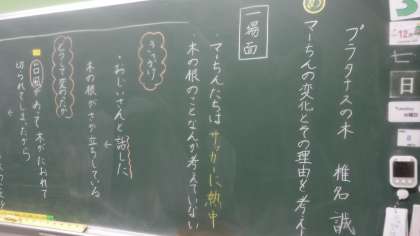 プラタナスの木 椎名 誠
め
マーちんの変化とその理由を考え
一場面
・マーちんたちはサッカーに熱中
・木の根のことなんか考えていない
きっかけ
・おじいさんと話した
木の根がさか立ちしている
台風があって木がたおれて
切られてしまったから
12
七
日